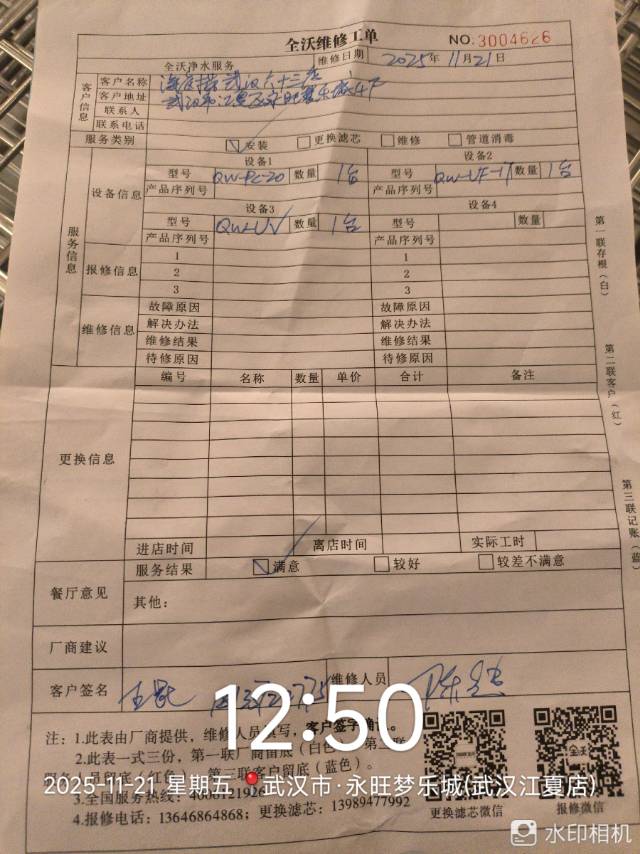 全沃维修工单
NO.3004626
全沃净水服务 维修日期 2025年11月21日
客户信息
客户名称 武汉六十三店
客户地址 武汉市江夏区永旺梦乐城4F
联系人
联系电话
服务类别 安装 更换滤芯 维修 管道消毒
服务信息
设备信息
设备1 设备2
型号 QW-PC-20 数量 1台 型号 QW-UF-1T 数量 1台
产品序列号 产品序列号
设备3 设备4
型号 QW-UV 数量 1台 型号 数量
产品序列号 产品序列号
报修信息
1 1
2 2
3 3
维修信息
故障原因 故障原因
解决办法 解决办法
维修结果 维修结果
待修原因 待修原因
更换信息
编号 名称 数量 单价 合计 备注
进店时间 离店时间 实际工时
餐厅意见
服务结果 满意 较好 较差不满意
其他:
厂商建议
客户签名 维修人员
注:1.此表由厂商提供,维修人员填写,客户签字确认。
2.此表一式三份,第一联厂商留底(白色) 第二联
留底(红色) 第三联客户留底(蓝色)。
3.全国服务热线:4008121926
4.报修电话:13646864868;更换滤芯:13989477992
更换滤芯微信
报修微信
第一联存根(白)
第二联客户(红)
第三联记账(蓝)
12:50
2025-11-21 星期五 武汉市·永旺梦乐城(武汉江夏店)
水印相机